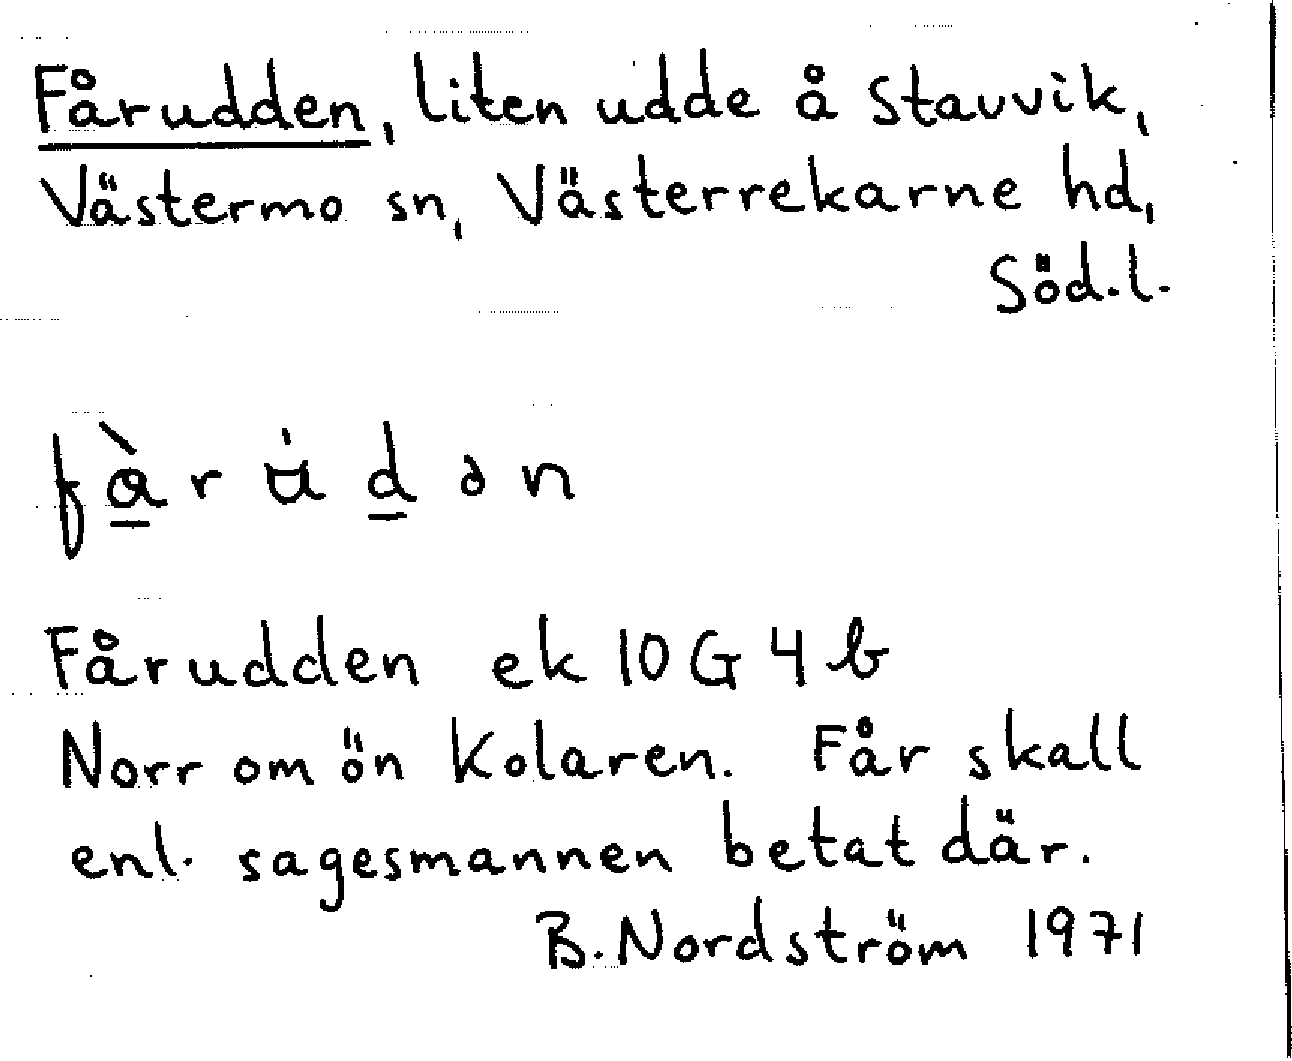 Fårudden, liten udde å Stavvik,
Västermo sn, Västerrekarne hd,
Söd.l.
fàrudən
Fårudden ek 10G 4b
Norr om ön Kolaren. Får skall
enl. sagesmannen betat där.
B. Nordström 1971